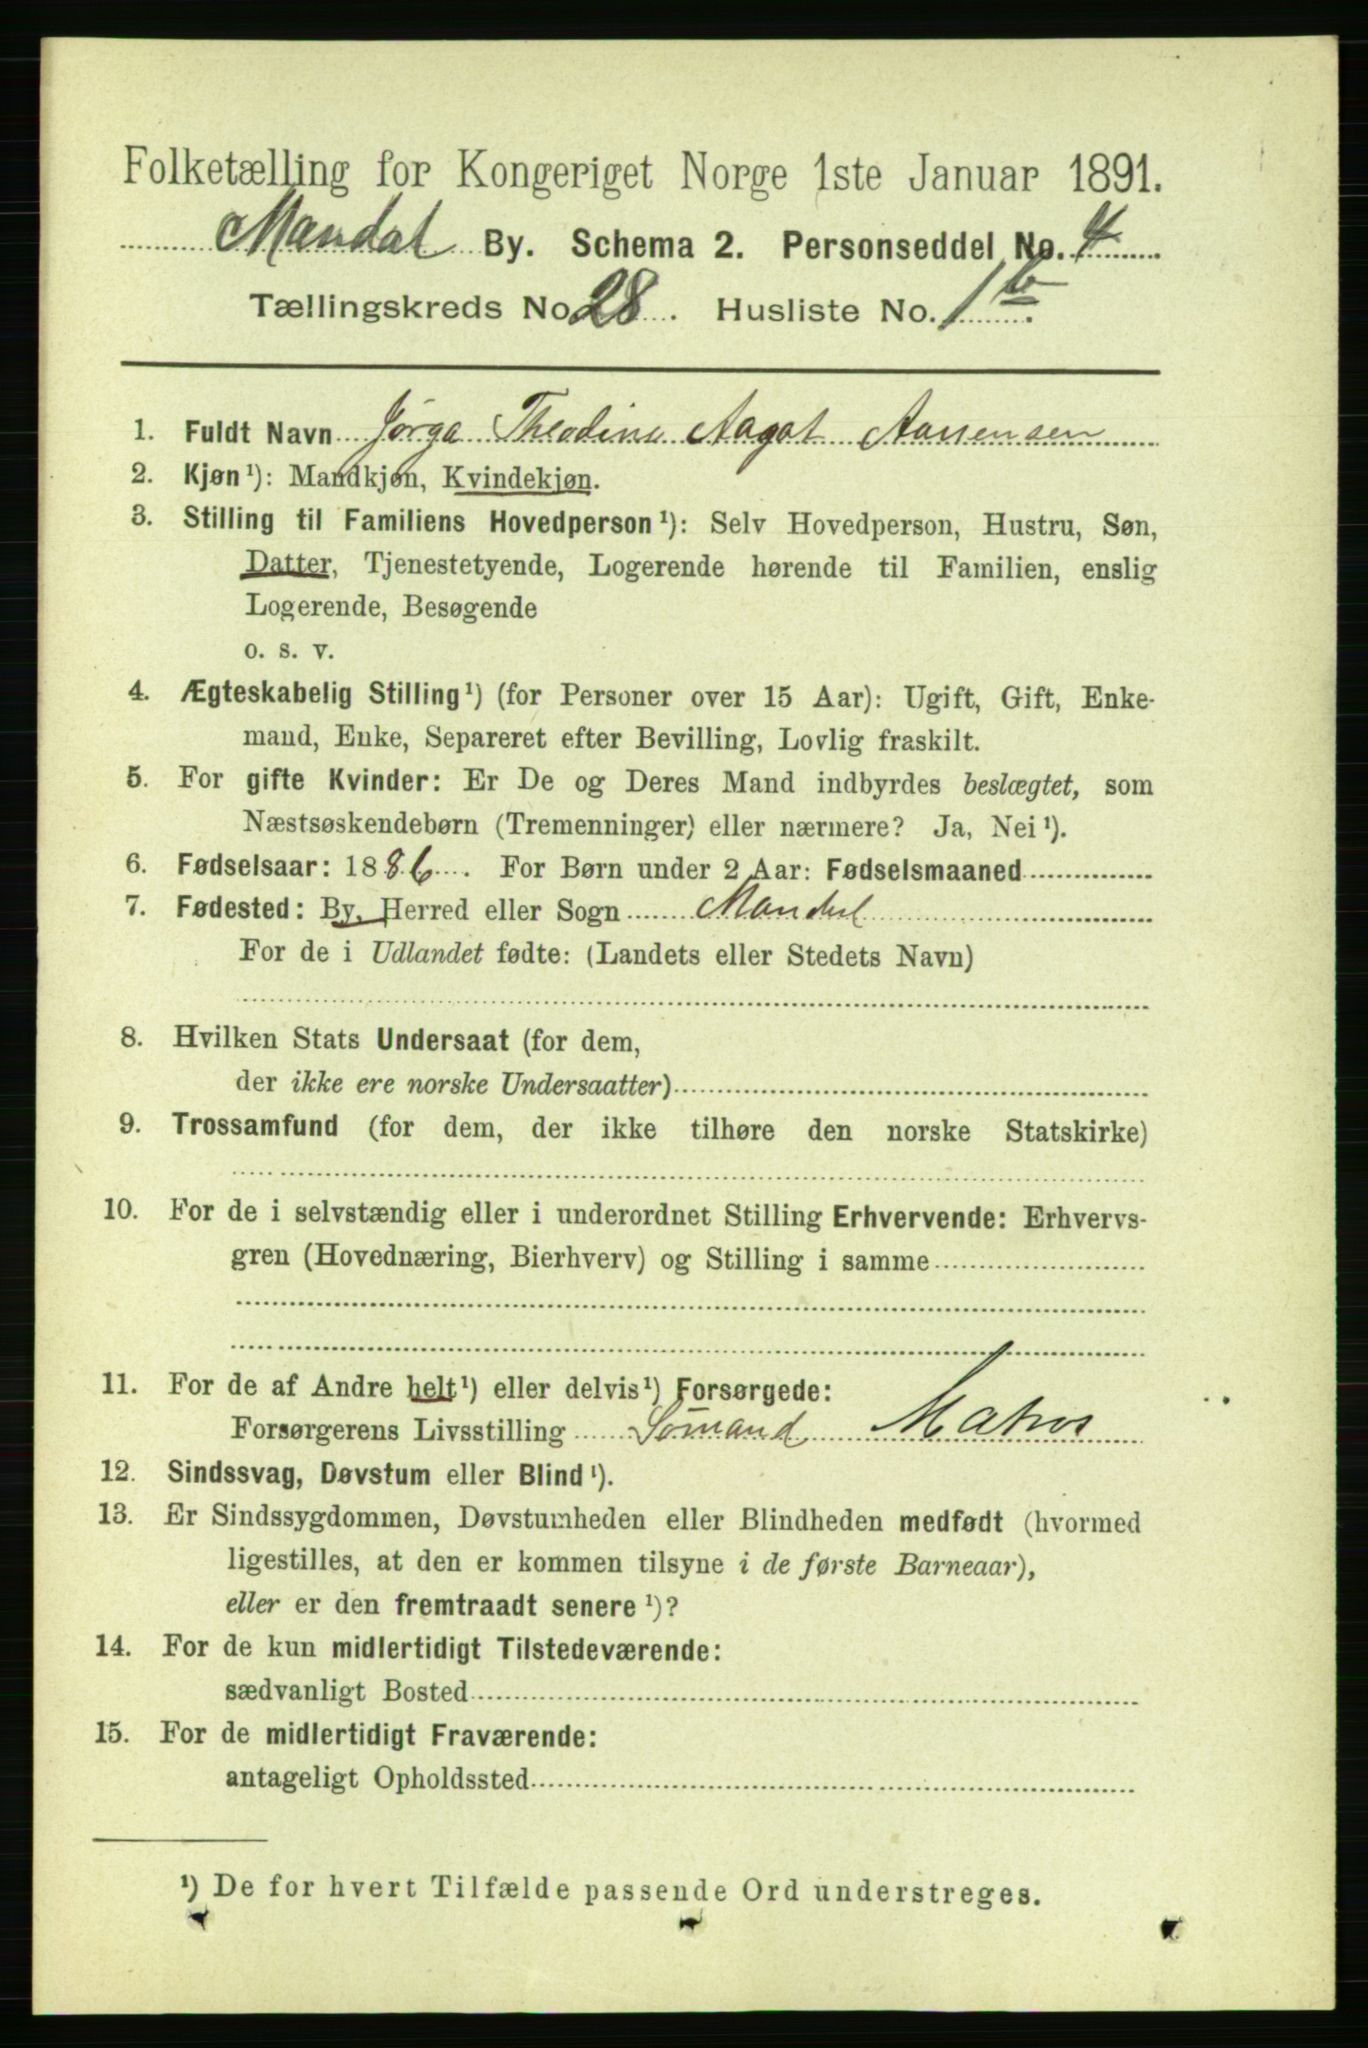 Folketælling for Kongeriget Norge 1ste Januar 1891.
Mandal By. Schema 2. Personseddel No. 4
Tællingskreds No. 28. Husliste No. 1 b.
1. Fuldt Navn Jörga Theodine Aagot Aanensen
2. Kjøn¹): Mandkjøn, Kvindekjøn.
3. Stilling til Familiens Hovedperson¹): Selv Hovedperson, Hustru, Søn,
Datter, Tjenestetyende, Logerende hørende til Familien, enslig
Logerende, Besøgende
o. s. v.
4. Ægteskabelig Stilling¹) (for Personer over 15 Aar): Ugift, Gift, Enke-
mand, Enke, Separeret efter Bevilling, Lovlig fraskilt.
5. For gifte Kvinder: Er De og Deres Mand indbyrdes beslægtet, som
Næstsøskendebørn (Tremenninger) eller nærmere? Ja, Nei¹).
6. Fødselsaar: 1886. For Børn under 2 Aar: Fødselsmaaned
7. Fødested: By, Herred eller Sogn Mandal
For de i Udlandet fødte: (Landets eller Stedets Navn)
8. Hvilken Stats Undersaat (for dem,
der ikke ere norske Undersaatter)
9. Trossamfund (for dem, der ikke tilhøre den norske Statskirke)
10. For de i selvstændig eller i underordnet Stilling Erhvervende: Erhvervs-
gren (Hovednæring, Bierhverv) og Stilling i samme
11. For de af Andre helt¹) eller delvis¹) Forsørgede:
Forsørgerens Livsstilling Sömand Matros
12. Sindssvag, Døvstum eller Blind¹).
13. Er Sindssygdommen, Døvstumheden eller Blindheden medfødt (hvormed
ligestilles, at den er kommen tilsyne i de første Barneaar),
eller er den fremtraadt senere¹)?
14. For de kun midlertidigt Tilstedeværende:
sædvanligt Bosted
15. For de midlertidigt Fraværende:
antageligt Opholdssted
¹) De for hvert Tilfælde passende Ord understreges.